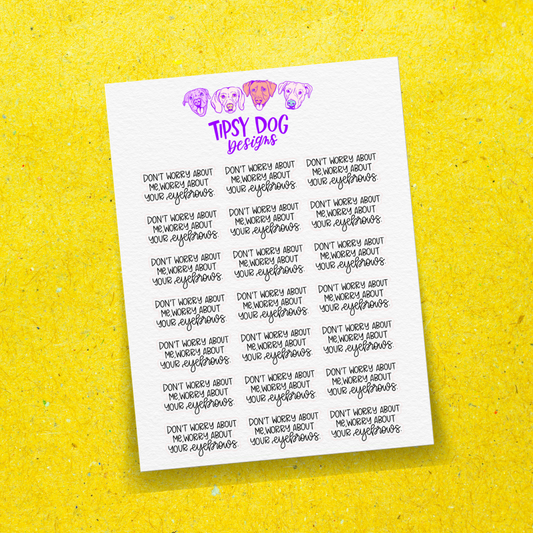 TIPSY DOG
Designs
DON'T WORRY ABOUT
ME,WORRY ABOUT
YOUR eyebrows.
DON'T WORRY ABOUT
ME,WORRY ABOUT
YOUR eyebrows.
DON'T WORRY ABOUT
ME,WORRY ABOUT
YOUR eyebrows.
DON'T WORRY ABOUT
ME,WORRY ABOUT
YOUR eyebrows.
DON'T WORRY ABOUT
ME,WORRY ABOUT
YOUR eyebrows.
DON'T WORRY ABOUT
ME,WORRY ABOUT
YOUR eyebrows.
DON'T WORRY ABOUT
ME,WORRY ABOUT
YOUR eyebrows.
DON'T WORRY ABOUT
ME,WORRY ABOUT
YOUR eyebrows.
DON'T WORRY ABOUT
ME,WORRY ABOUT
YOUR eyebrows.
DON'T WORRY ABOUT
ME,WORRY ABOUT
YOUR eyebrows.
DON'T WORRY ABOUT
ME,WORRY ABOUT
YOUR eyebrows.
DON'T WORRY ABOUT
ME,WORRY ABOUT
YOUR eyebrows.
DON'T WORRY ABOUT
ME,WORRY ABOUT
YOUR eyebrows.
DON'T WORRY ABOUT
ME,WORRY ABOUT
YOUR eyebrows.
DON'T WORRY ABOUT
ME,WORRY ABOUT
YOUR eyebrows.
DON'T WORRY ABOUT
ME,WORRY ABOUT
YOUR eyebrows.
DON'T WORRY ABOUT
ME,WORRY ABOUT
YOUR eyebrows.
DON'T WORRY ABOUT
ME,WORRY ABOUT
YOUR eyebrows.
DON'T WORRY ABOUT
ME,WORRY ABOUT
YOUR eyebrows.
DON'T WORRY ABOUT
ME,WORRY ABOUT
YOUR eyebrows.
DON'T WORRY ABOUT
ME,WORRY ABOUT
YOUR eyebrows.